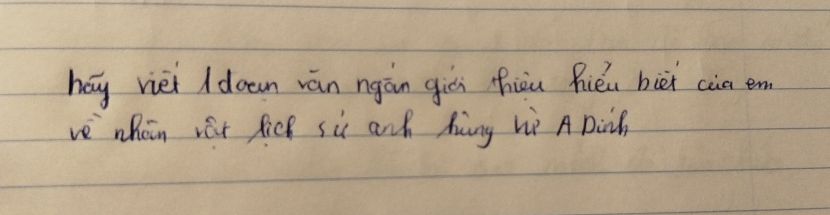 hãy viết 1 đoạn văn ngắn giới thiệu hiểu biết của em
về nhân vật lịch sử anh hùng Vừ A Dính